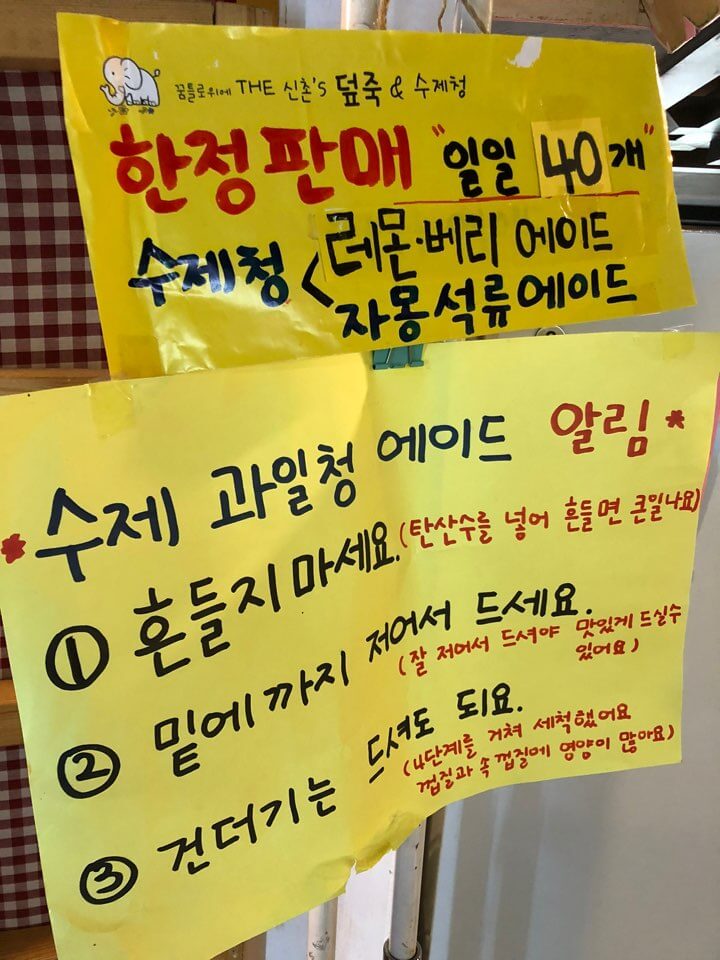 꿈틀로위에 THE 신촌's 덮죽 & 수제청
한정판매 "일일 40개"
수제청 < 레몬·베리 에이드
자몽석류에이드
*수제 과일청 에이드 알림*
① 흔들지마세요.(탄산수를 넣어 흔들면 큰일나요)
② 밑에까지 저어서 드세요.
(잘 저어서 드셔야 맛있게 드실수
있어요)
③ 건더기는 드셔도 되요.
(4단계를 거쳐 세척했어요
껍질과 속껍질에 영양이 많아요)